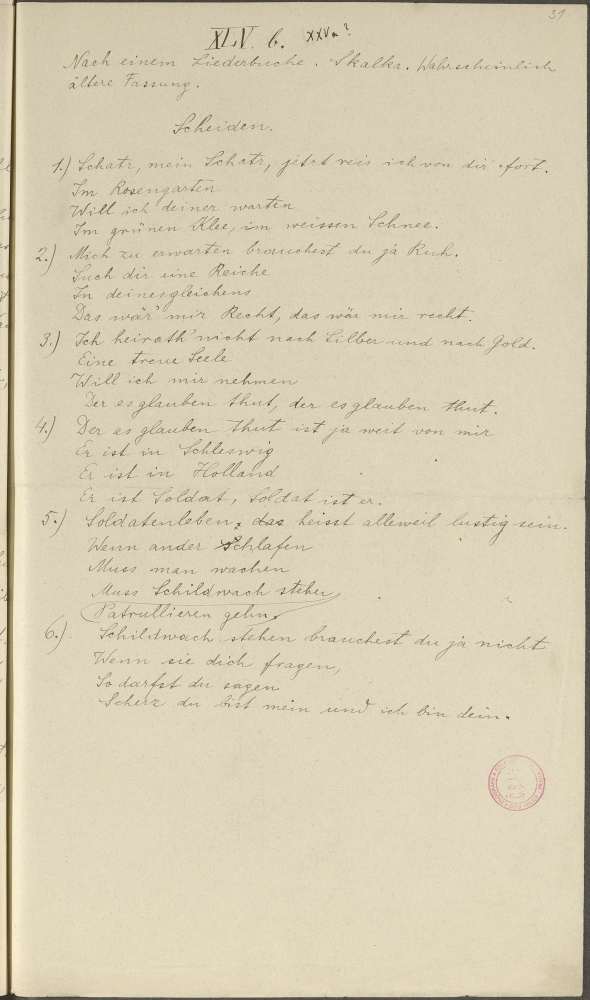 31
XLV. b. XXV a ?
Nach einem Liederbuche. Skalka. Wahrscheinlich
ältere Fassung.
Scheiden.
1.) Schatz, mein Schatz, jetzt reis ich von dir fort.
Im Rosengarten
Will ich deiner warten
Im grünen Klee, im weissen Schnee.
2.) Mich zu erwarten brauchest du ja Ruh.
Such dir eine Reiche
In deinesgleichens
Das wär' mir Recht, das wär mir recht.
3.) Ich heirath' nicht nach Silber und nach Gold.
Eine treue Seele
Will ich mir nehmen
Der es glauben thut, der es glauben thut.
4.) Der es glauben thut ist ja weit von mir
Er ist in Schleswig
Er ist in Holland
Er ist Soldat, Soldat ist er.
5.) Soldatenleben, das heisst alleweil lustig sein.
Wenn ander Schlafen
Muss man wachen
Muss Schildwach stehen
Patrullieren gehn.
6.) Schildwach stehen brauchest du ja nicht
Wenn sie dich fragen,
So darfst du sagen
Scherz du bist mein und ich bin dein.